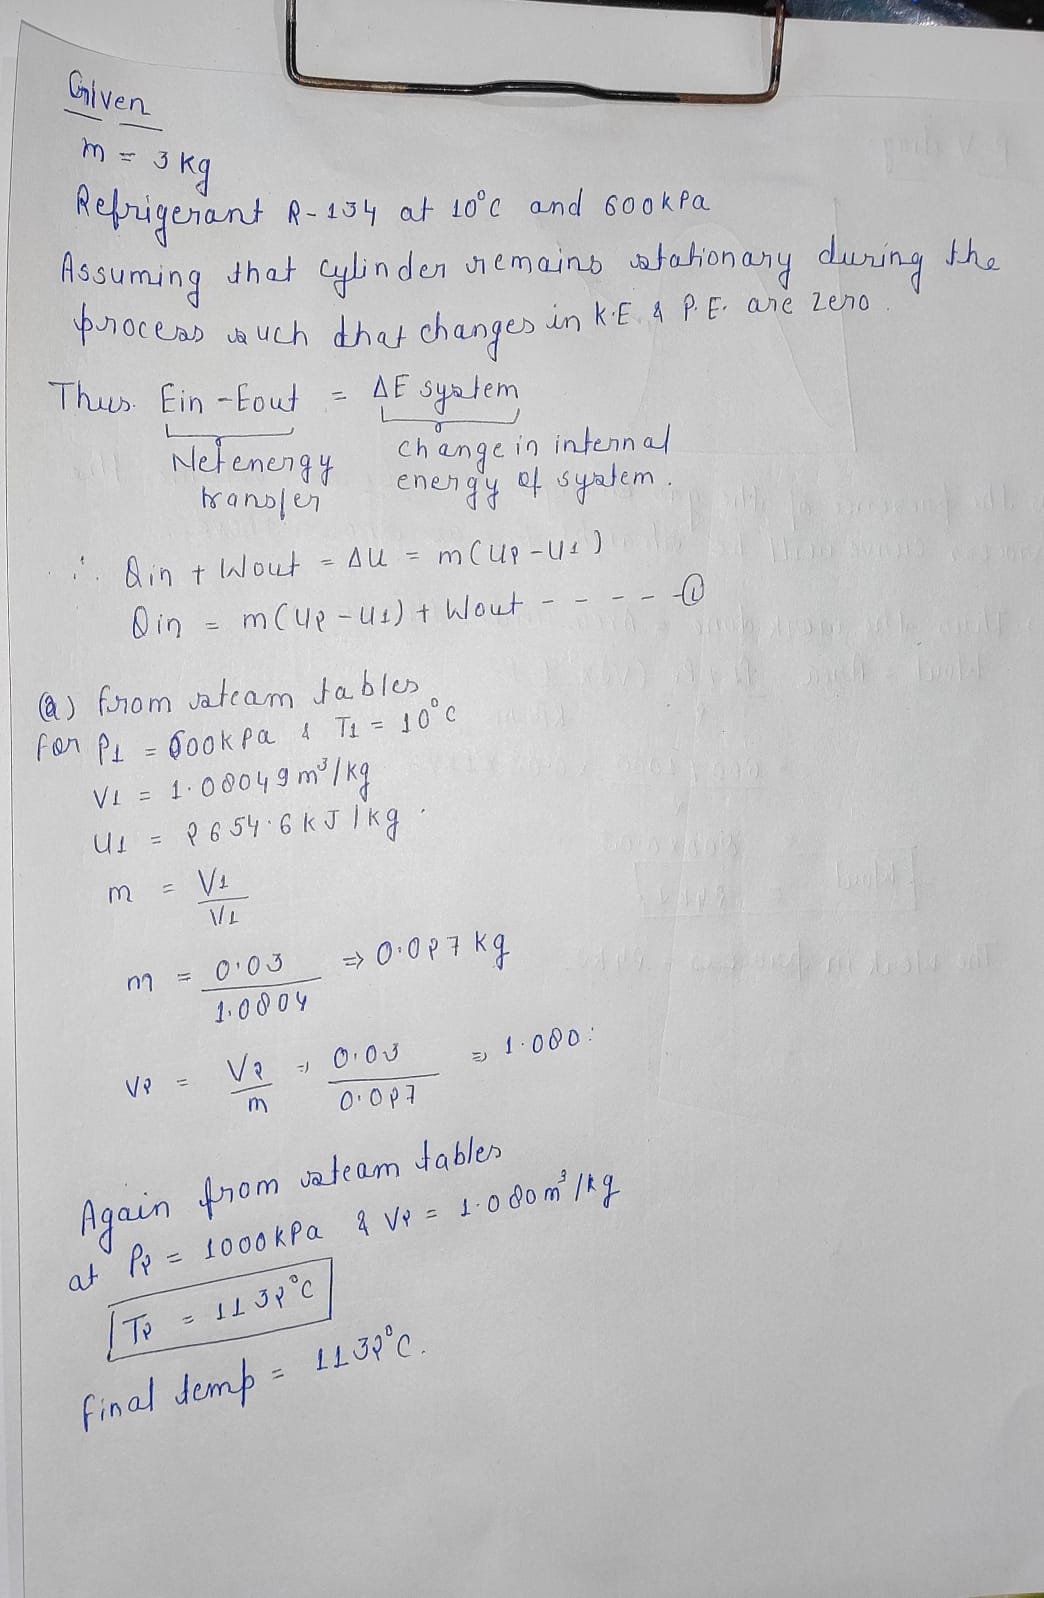 Given
m = 3 kg
Refrigerant R-134 at 10°C and 600kPa
Assuming that cylinder remains stationary during the
process such that changes in K.E & P.E. are zero.
Thus. Ein - Eout = ΔE system
Net energy transfer
change in internal energy of system.
∴ Qin + Wout = ΔU = m(U2 - U1)
Qin = m(U2 - U1) + Wout - - - - - ①
(a) from steam tables
for P1 = 600kPa & T1 = 10°C
V1 = 1.08049 m³/kg
U1 = 2654.6 kJ/kg.
m = V1/V1
m = 0.03/1.0804 ⇒ 0.027 kg
V2 = V2/m ⇒ 0.03/0.027 ⇒ 1.080:
Again from steam tables
at P2 = 1000kPa & V2 = 1.080 m³/kg
T2 = 1132°C
final temp = 1132°C.